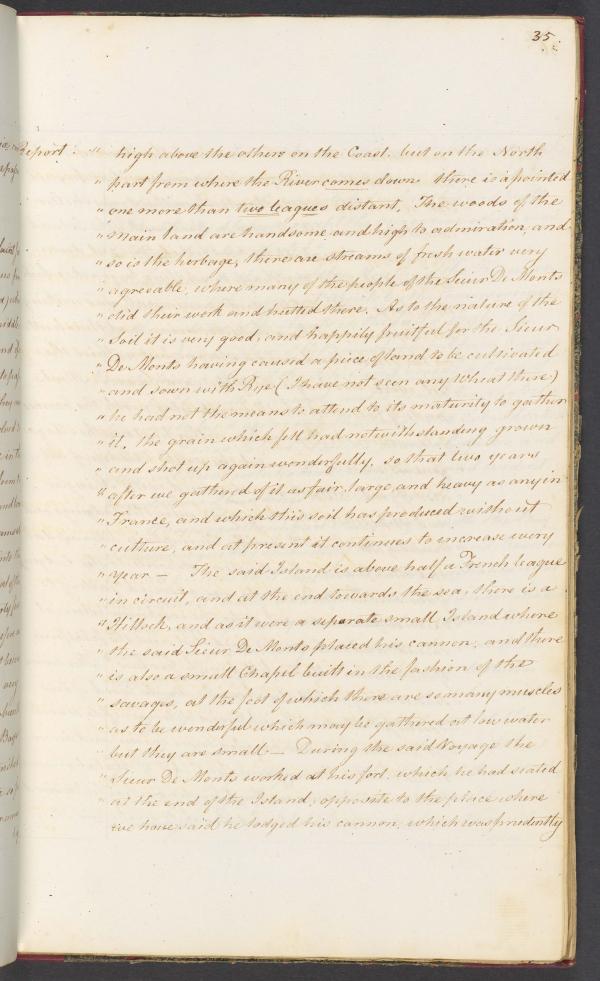 35
Report. " high above the others on the Coast. but on the North
" part from where the River comes down there is a pointed
" one more than two leagues distant. The woods of the
" Main land are handsome and high to admiration, and
" so is the herbage, there are streams of fresh water very
" agreeable, where many of the people of the Sieur De Monts
" did their work and hutted there. As to the nature of the
" Soil it is very good, and happily fruitful for the Sieur
" De Monts having caused a piece of land to be cultivated
" and sown with Rye (I have not seen any Wheat there)
" he had not the means to attend to its maturity to gather
" it. the grain which fell had notwithstanding grown
" and shot up again wonderfully. so that two years
" after we gathered of it as fair, large, and heavy as any in
" France, and which this soil has produced without
" culture, and at present it continues to increase every
" year — The said Island is above half a French league
" in circuit, and at the end towards the sea, there is a
" Hillock, and as it were a separate small Island where
" the said Sieur De Monts placed his cannon, and there
" is also a small Chapel built in the fashion of the
" savages, at the foot of which there are so many muscles
" as to be wonderful which may be gathered at low water
" but they are small — During the said Voyage the
" Sieur De Monts worked at his fort. which he had seated
" at the end of the Island, opposite to the place where
we have said he lodged his cannon, which was prudently